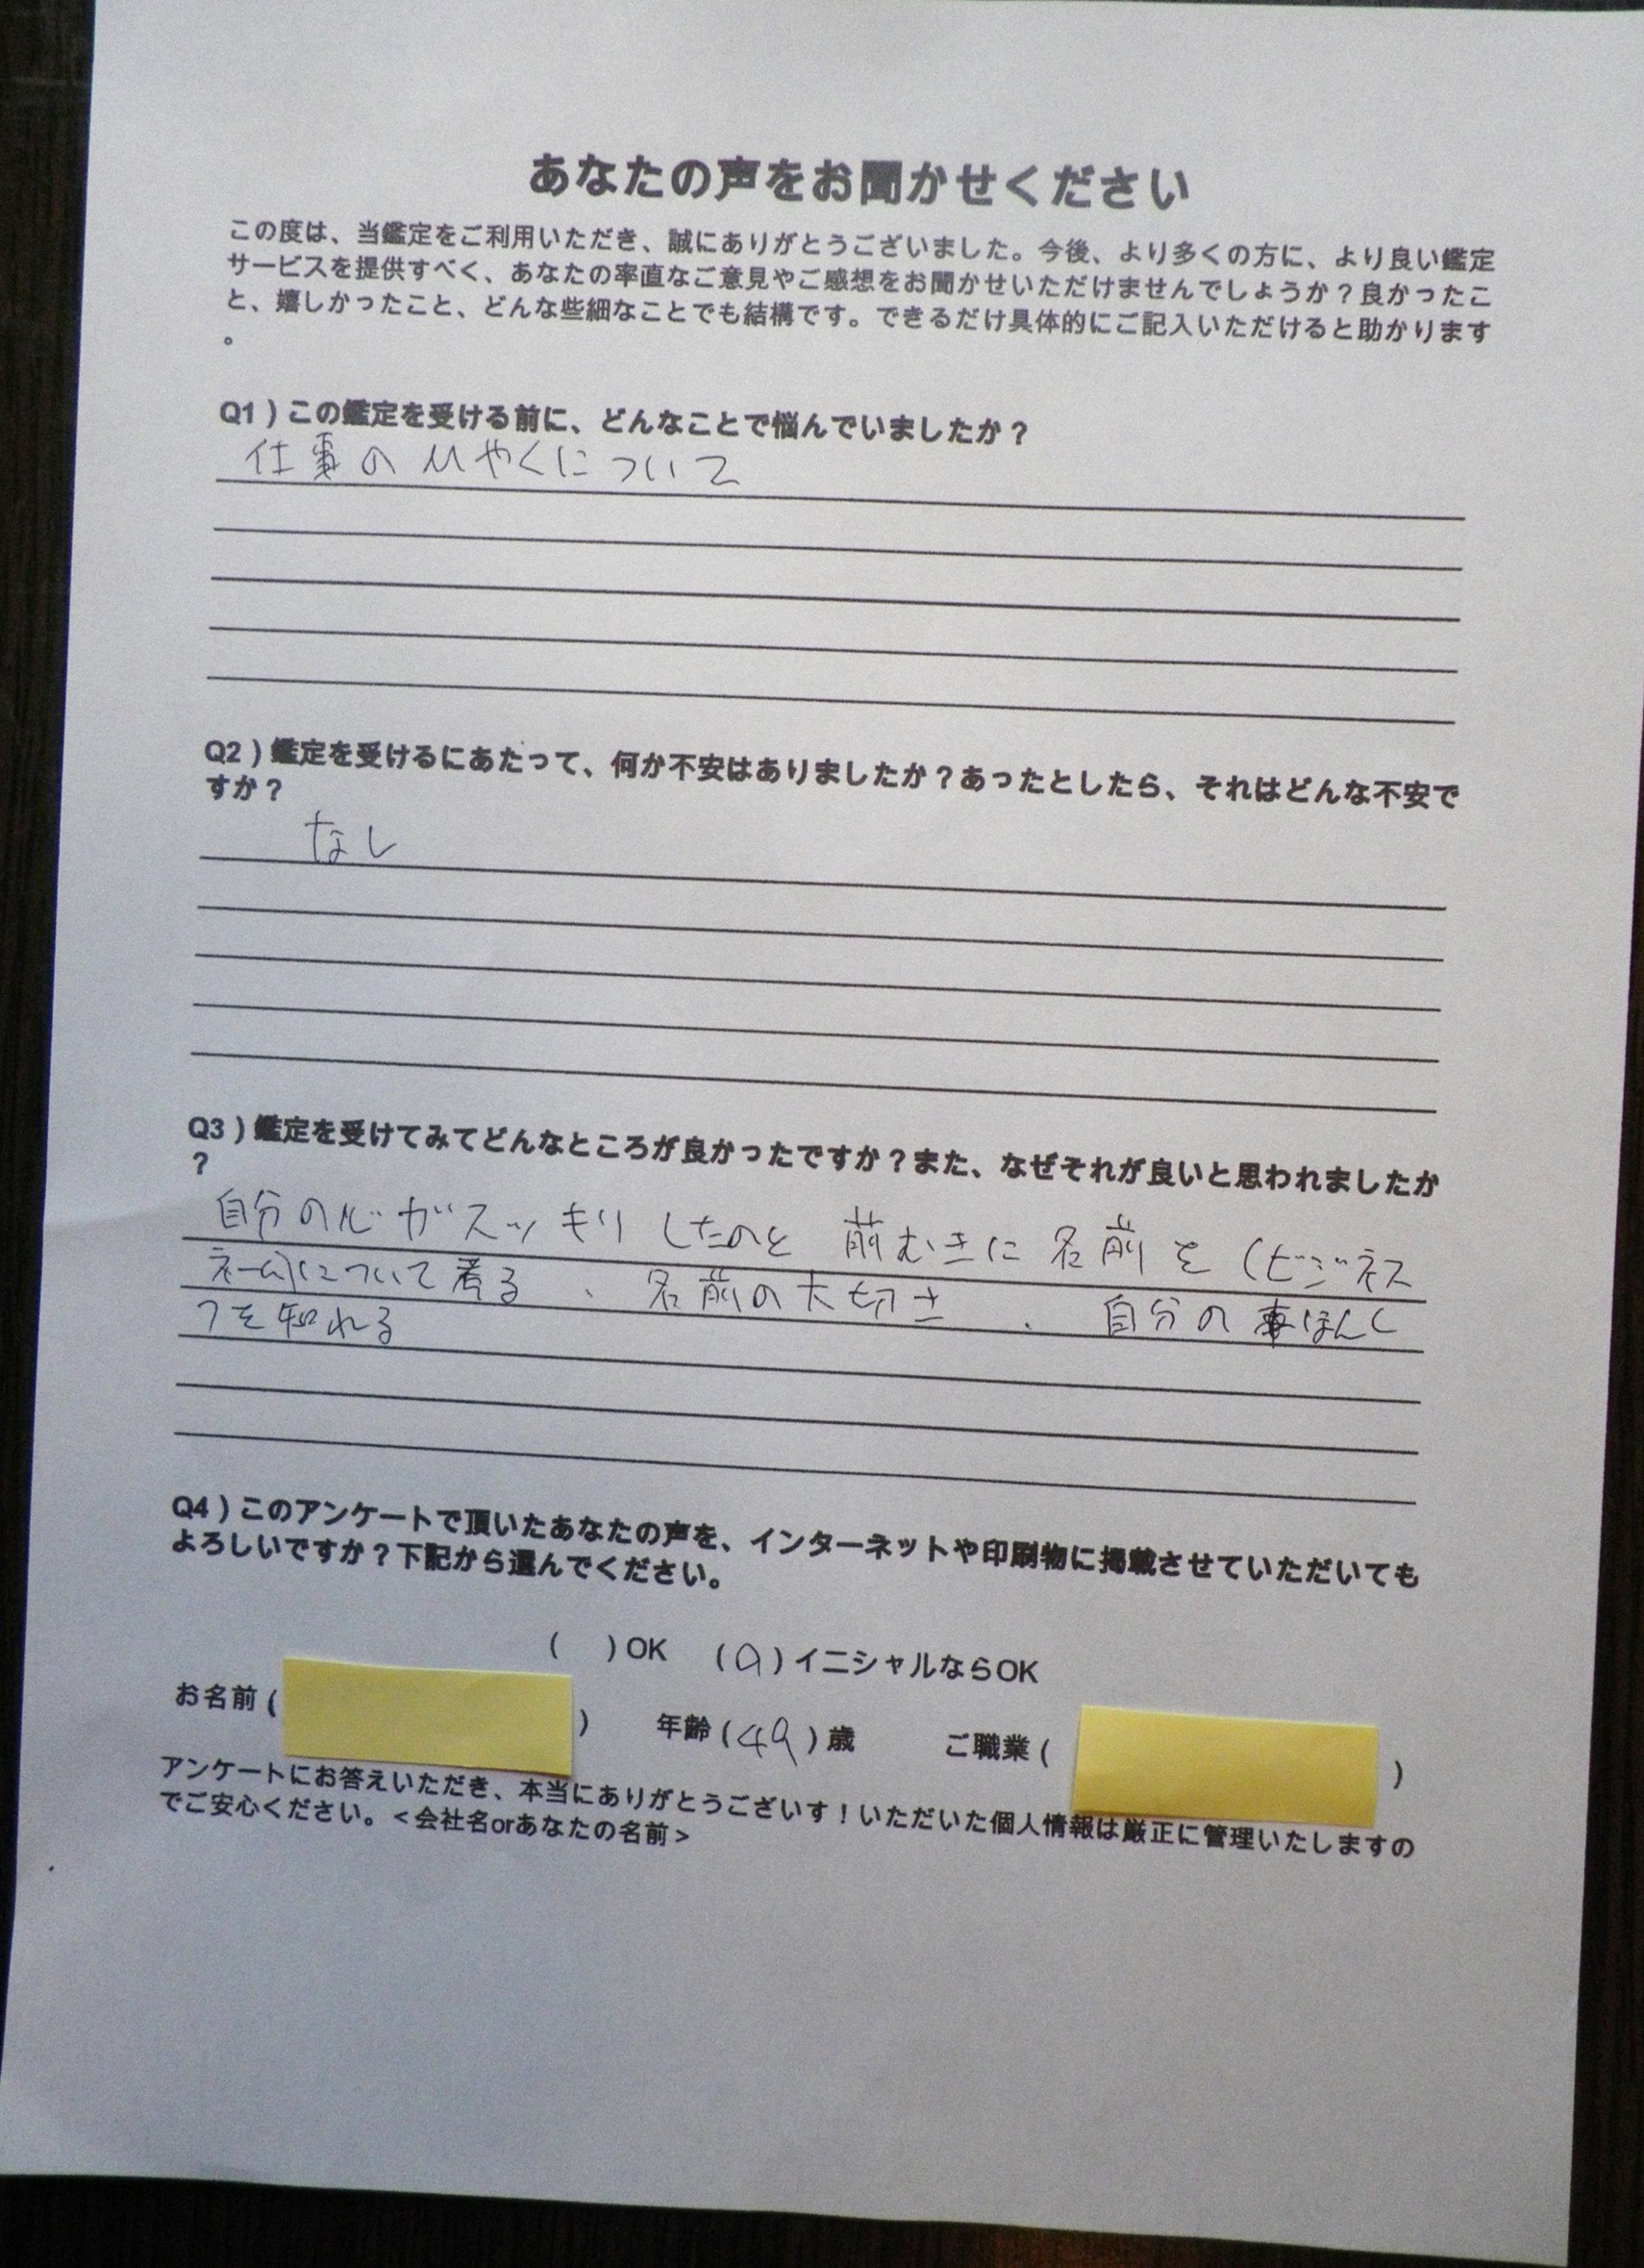 あなたの声をお聞かせください
この度は、当鑑定をご利用いただき、誠にありがとうございました。今後、より多くの方に、より良い鑑定
サービスを提供すべく、あなたの率直なご意見やご感想をお聞かせいただけませんでしょうか？良かったこ
と、嬉しかったこと、どんな些細なことでも結構です。できるだけ具体的にご記入いただけると助かります
。
Q1）この鑑定を受ける前に、どんなことで悩んでいましたか？
仕事のひやくについて
Q2）鑑定を受けるにあたって、何か不安はありましたか？あったとしたら、それはどんな不安で
すか？
なし
Q3）鑑定を受けてみてどんなところが良かったですか？また、なぜそれが良いと思われましたか
？
自分の心がスッキリしたのと 前むきに名前を（ビジネス
ネーム）について着る、名前の大切さ、自分の事ほんし
つを知れる
Q4）このアンケートで頂いたあなたの声を、インターネットや印刷物に掲載させていただいても
よろしいですか？下記から選んでください。
（　）OK （○）イニシャルならOK
お名前（　）　年齢（49）歳　ご職業（　）
アンケートにお答えいただき、本当にありがとうございす！いただいた個人情報は厳正に管理いたしますの
でご安心ください。＜会社名orあなたの名前＞